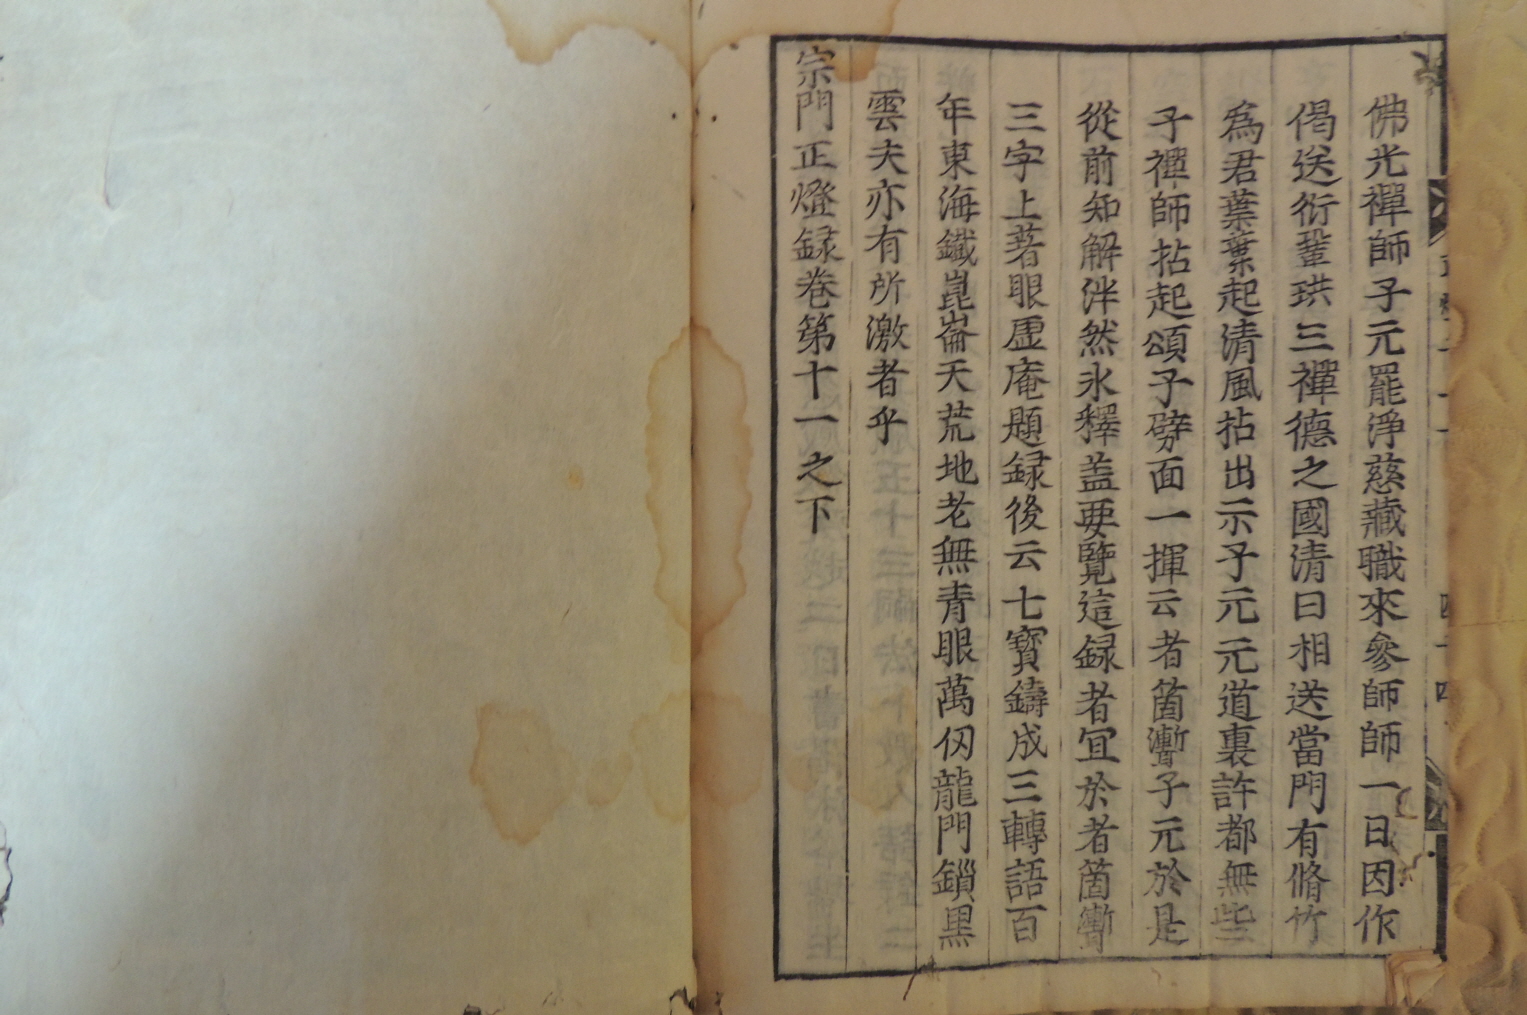 佛光禪師子元罷淨慈藏職來參師師一日因作
偈送衍鞏珙三禪德之國清曰相送當門有脩竹
爲君葉葉起清風拈出示子元元道裏許都無些
子禪師拈起頌子劈面一揮云者箇漸子元於是
從前知解泮然氷釋蓋要覽這録者冝於者箇
三字上著眼虛庵題録後云七寶鑄成三轉語百
年東海鐵崑崙天荒地老無青眼萬仞龍門鎻黒
雲夫亦有所激者乎
宗門正燈録卷第十一之下